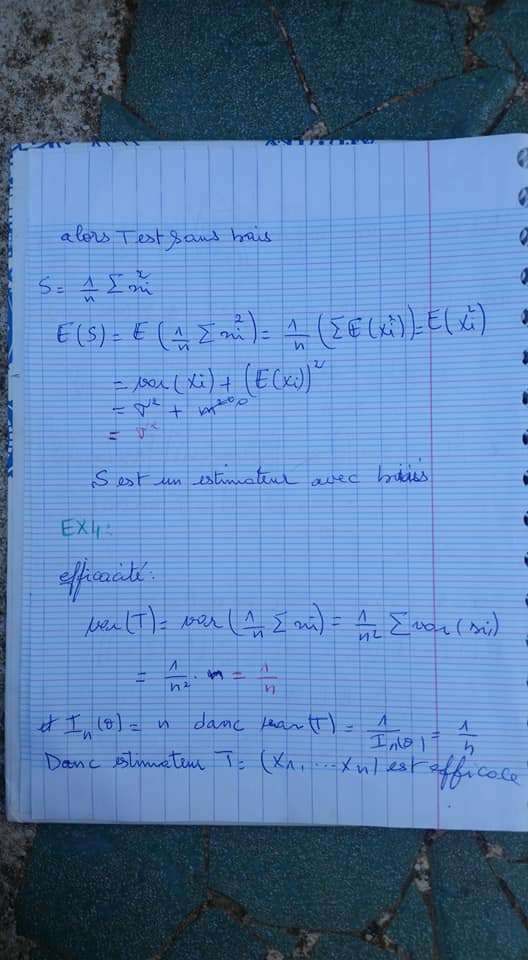 alors T est sans bais
S = 1/n Σ xi²
E(S) = E(1/n Σ xi²) = 1/n (Σ E(xi²)) = E(xi²)
= var(Xi) + (E(xi))²
= σ² + m²
= σ²
S est un estimateur avec biais
EX4:
efficacité:
var(T) = var(1/n Σ xi) = 1/n² Σ var(xi)
= 1/n² · n = 1/n
et In(θ) = n danc var(T) = 1/In(θ) = 1/n
Danc estimateur T = (X1, ... Xn) est efficace